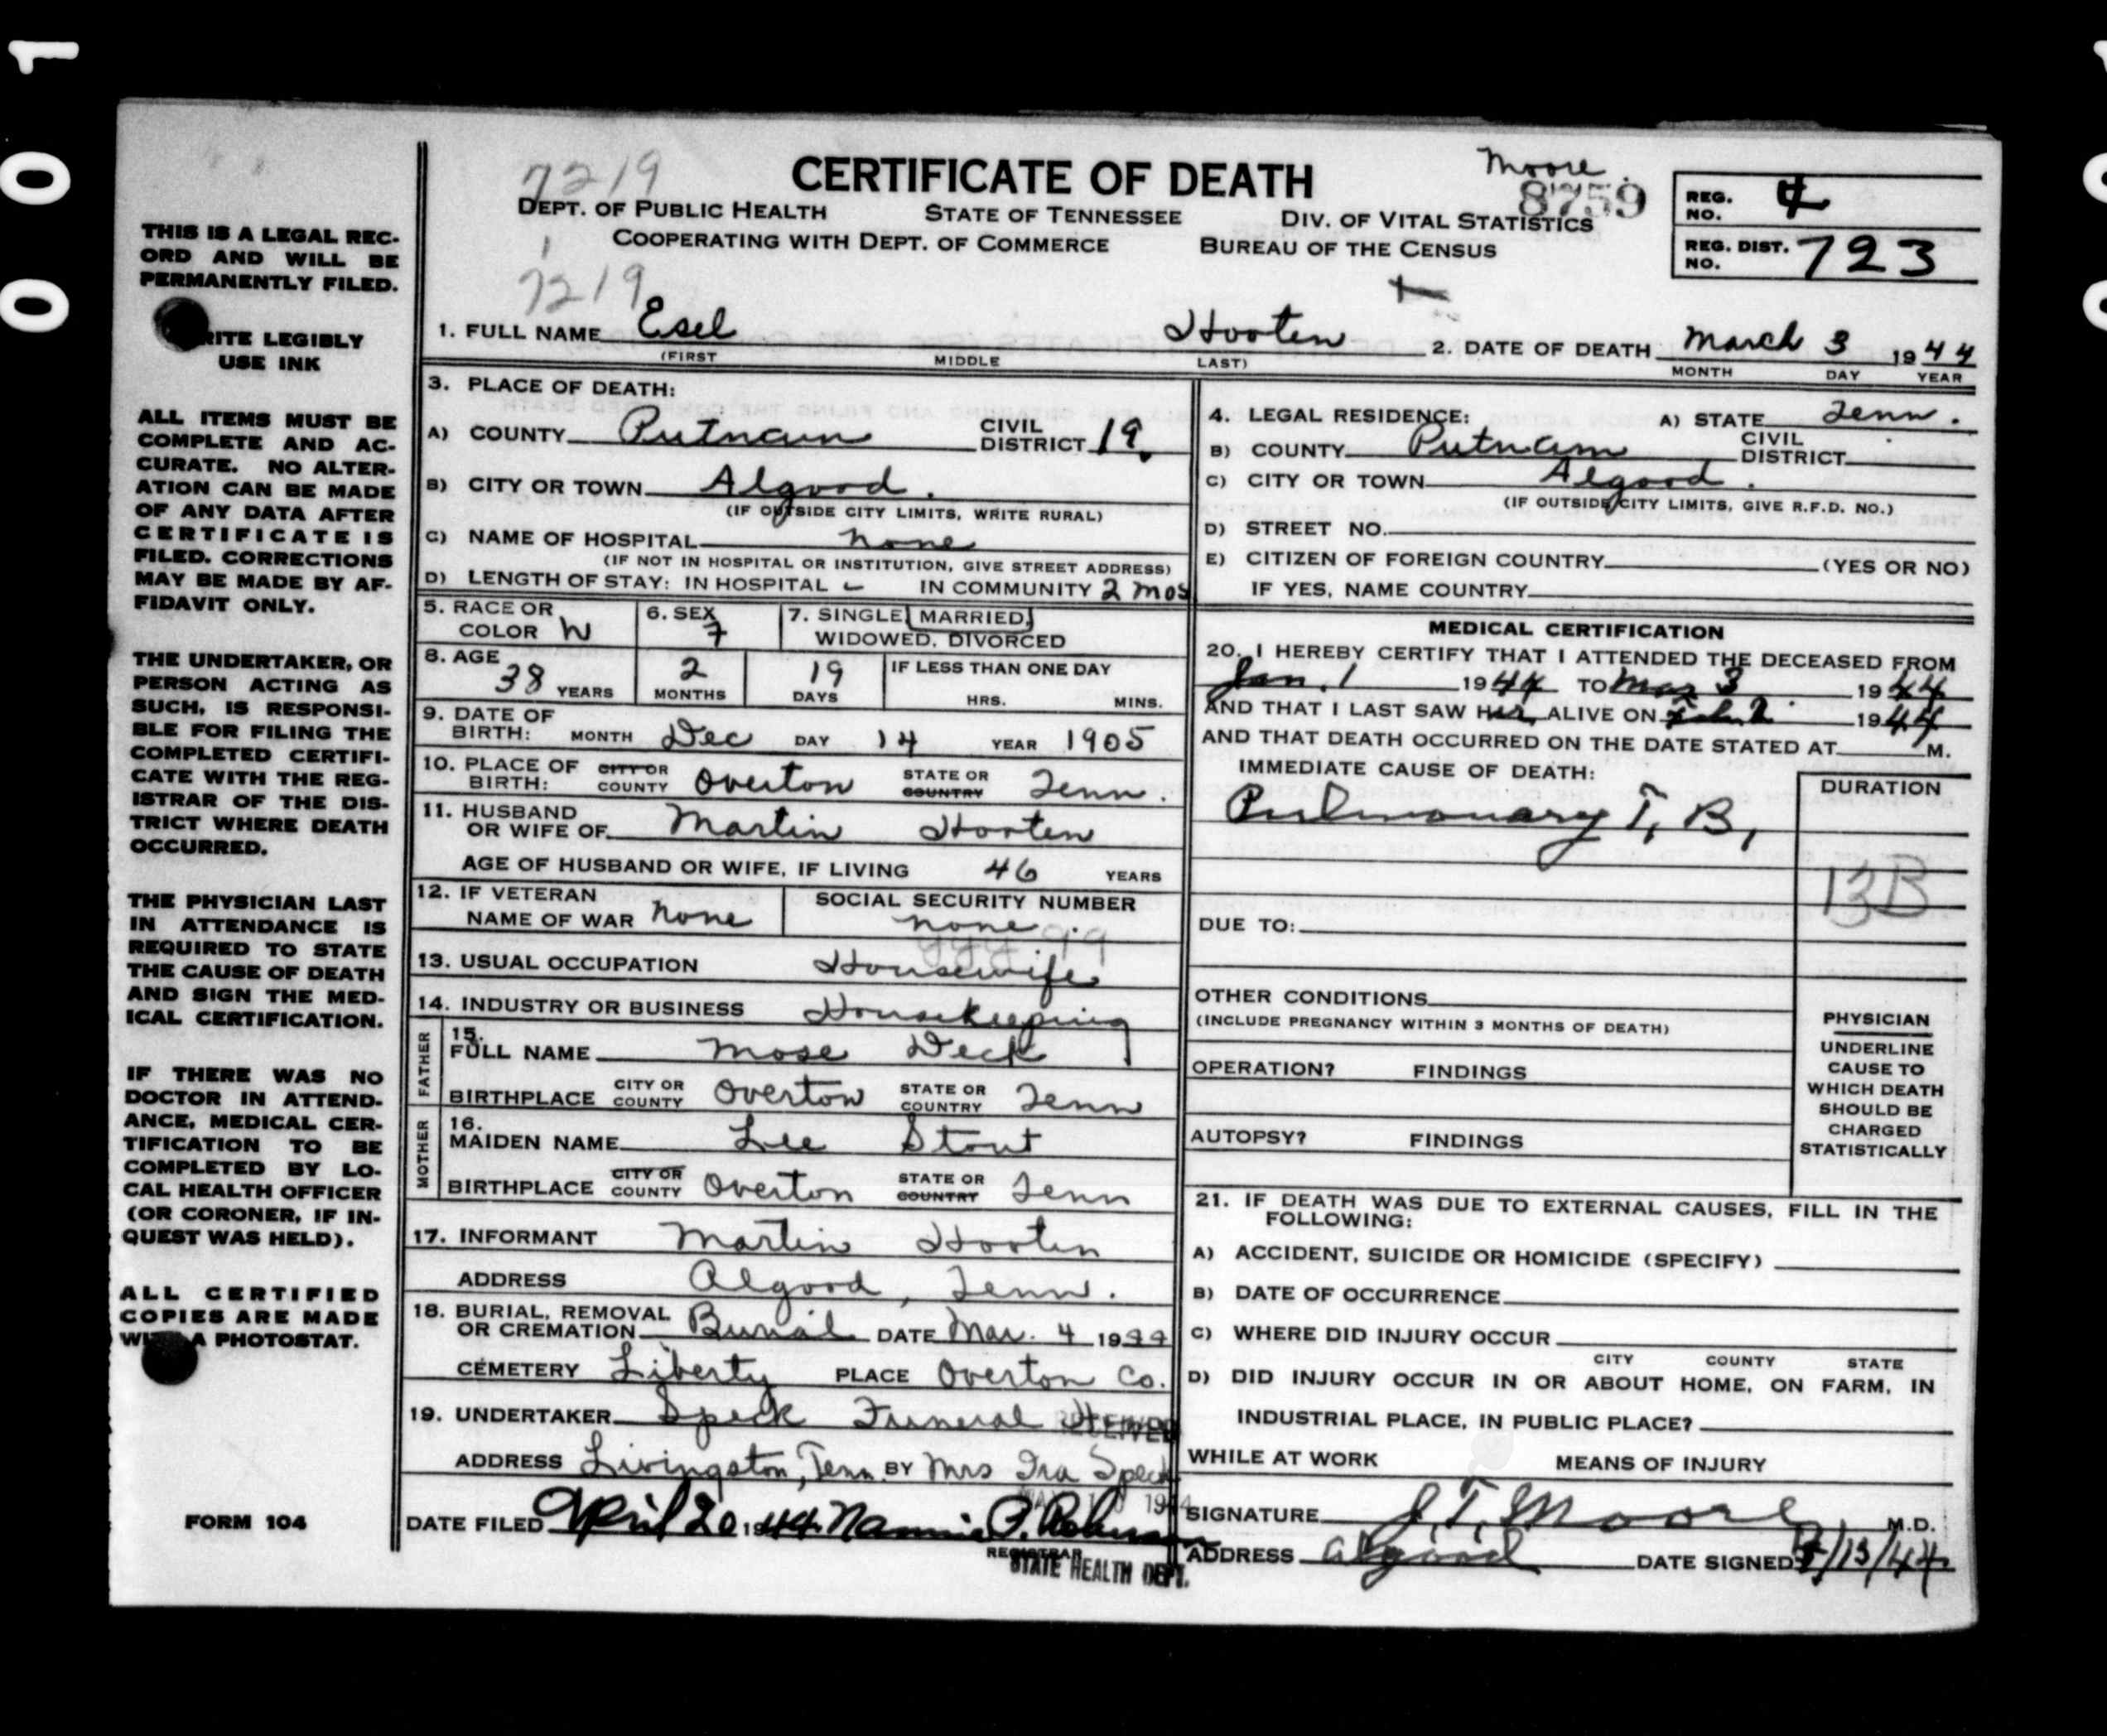 0 0 1
Moore
7219
CERTIFICATE OF DEATH
8759
REG. NO. 4
DEPT. OF PUBLIC HEALTH STATE OF TENNESSEE DIV. OF VITAL STATISTICS
COOPERATING WITH DEPT. OF COMMERCE BUREAU OF THE CENSUS
REG. DIST. NO. 723
7219
THIS IS A LEGAL REC-
ORD AND WILL BE
PERMANENTLY FILED.
RITE LEGIBLY
USE INK
ALL ITEMS MUST BE
COMPLETE AND AC-
CURATE. NO ALTER-
ATION CAN BE MADE
OF ANY DATA AFTER
CERTIFICATE IS
FILED. CORRECTIONS
MAY BE MADE BY AF-
FIDAVIT ONLY.
THE UNDERTAKER, OR
PERSON ACTING AS
SUCH, IS RESPONSI-
BLE FOR FILING THE
COMPLETED CERTIFI-
CATE WITH THE REG-
ISTRAR OF THE DIS-
TRICT WHERE DEATH
OCCURRED.
THE PHYSICIAN LAST
IN ATTENDANCE IS
REQUIRED TO STATE
THE CAUSE OF DEATH
AND SIGN THE MED-
ICAL CERTIFICATION.
IF THERE WAS NO
DOCTOR IN ATTEND-
ANCE, MEDICAL CER-
TIFICATION TO BE
COMPLETED BY LO-
CAL HEALTH OFFICER
(OR CORONER, IF IN-
QUEST WAS HELD).
ALL CERTIFIED
COPIES ARE MADE
A PHOTOSTAT.
FORM 104
1. FULL NAME Esel Hooten 2. DATE OF DEATH March 3 1944
(FIRST MIDDLE LAST) MONTH DAY YEAR
3. PLACE OF DEATH:
A) COUNTY Putnam CIVIL DISTRICT 19
B) CITY OR TOWN Algood.
(IF OUTSIDE CITY LIMITS, WRITE RURAL)
C) NAME OF HOSPITAL none
(IF NOT IN HOSPITAL OR INSTITUTION, GIVE STREET ADDRESS)
D) LENGTH OF STAY: IN HOSPITAL – IN COMMUNITY 2 mos
4. LEGAL RESIDENCE: A) STATE Tenn.
B) COUNTY Putnam CIVIL DISTRICT
C) CITY OR TOWN Algood.
(IF OUTSIDE CITY LIMITS, GIVE R.F.D. NO.)
D) STREET NO.
E) CITIZEN OF FOREIGN COUNTRY (YES OR NO)
IF YES, NAME COUNTRY
5. RACE OR COLOR W 6. SEX F 7. SINGLE, MARRIED, WIDOWED, DIVORCED
8. AGE 38 YEARS 2 MONTHS 19 DAYS IF LESS THAN ONE DAY HRS. MINS.
9. DATE OF BIRTH: MONTH Dec DAY 14 YEAR 1905
10. PLACE OF BIRTH: CITY OR COUNTY Overton STATE OR COUNTRY Tenn.
11. HUSBAND OR WIFE OF Martin Hooten
AGE OF HUSBAND OR WIFE, IF LIVING 46 YEARS
12. IF VETERAN NAME OF WAR none SOCIAL SECURITY NUMBER none
13. USUAL OCCUPATION Housewife
14. INDUSTRY OR BUSINESS Housekeeping
FATHER
15. FULL NAME Mose Deck
BIRTHPLACE CITY OR COUNTY Overton STATE OR COUNTRY Tenn
MOTHER
16. MAIDEN NAME Lee Stout
BIRTHPLACE CITY OR COUNTY Overton STATE OR COUNTRY Tenn
17. INFORMANT Martin Hooten
ADDRESS Algood, Tenn.
18. BURIAL, REMOVAL OR CREMATION Burial DATE Mar. 4 1944
CEMETERY Liberty PLACE Overton Co.
19. UNDERTAKER Speck Funeral Home
RECEIVED
ADDRESS Livingston, Tenn. BY Mrs Ira Speck
DATE FILED April 20 1944 Nannie P.
REGISTRAR
STATE HEALTH DEPT.
MEDICAL CERTIFICATION
20. I HEREBY CERTIFY THAT I ATTENDED THE DECEASED FROM
Jan. 1 1944 TO Mar 3 1944
AND THAT I LAST SAW Her ALIVE ON 1944
AND THAT DEATH OCCURRED ON THE DATE STATED AT M.
IMMEDIATE CAUSE OF DEATH: DURATION
Pulmonary T. B.,
13B
DUE TO:
OTHER CONDITIONS
(INCLUDE PREGNANCY WITHIN 3 MONTHS OF DEATH)
OPERATION? FINDINGS
AUTOPSY? FINDINGS
PHYSICIAN
UNDERLINE
CAUSE TO
WHICH DEATH
SHOULD BE
CHARGED
STATISTICALLY
21. IF DEATH WAS DUE TO EXTERNAL CAUSES, FILL IN THE
FOLLOWING:
A) ACCIDENT, SUICIDE OR HOMICIDE (SPECIFY)
B) DATE OF OCCURRENCE
C) WHERE DID INJURY OCCUR
CITY COUNTY STATE
D) DID INJURY OCCUR IN OR ABOUT HOME, ON FARM, IN
INDUSTRIAL PLACE, IN PUBLIC PLACE?
WHILE AT WORK MEANS OF INJURY
SIGNATURE J. T. Moore M.D.
ADDRESS Algood DATE SIGNED /13/44